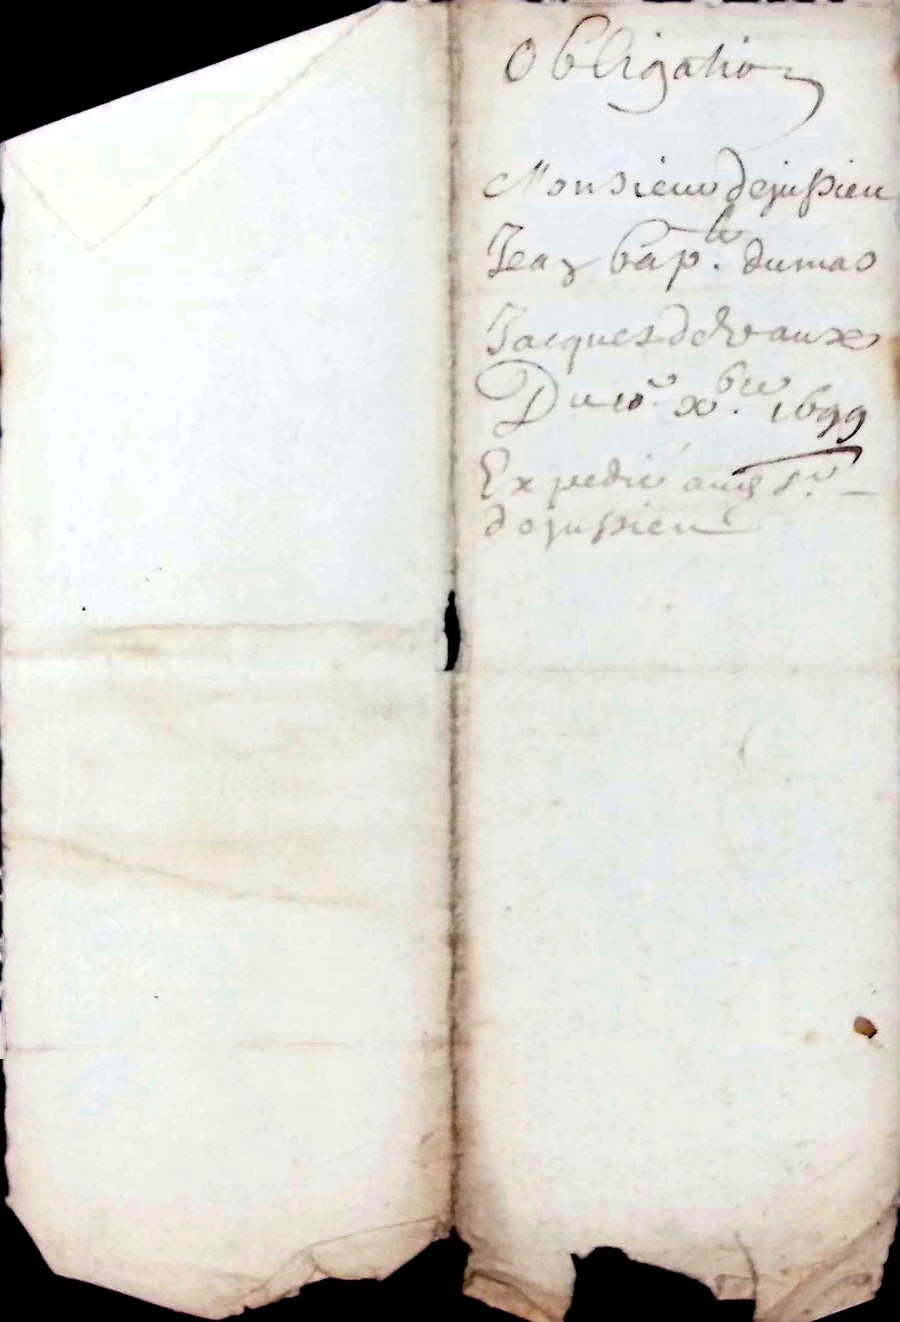 Obligation
Monsieur dejussieu
Jean bap.te dumas
Jacques deVaux
Du 10.e xbre 1699
Expedié aud sr
dejussieu